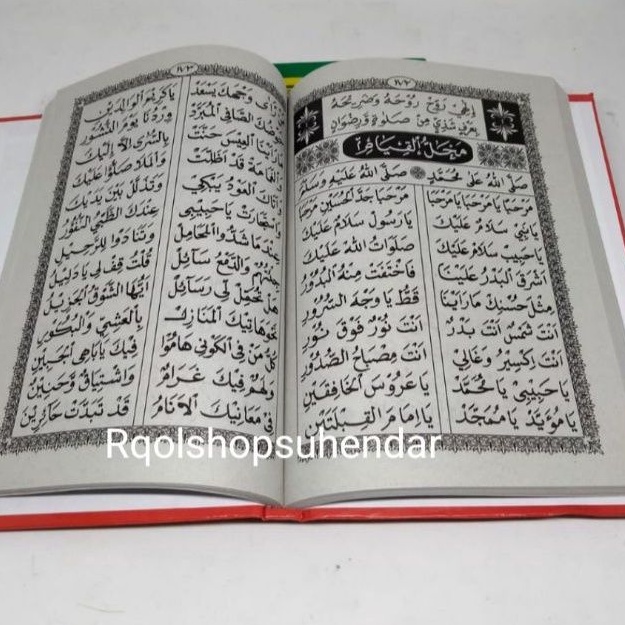 اِلٰهِيْ رَوِّحْ رُوْحَهُ وَضَرِيْحَهُ
بِعَرْفٍ شَذِيٍّ مِنْ صَلَوةٍ وَرِضْوَانٍ
مَحَلُّ الْقِيَامِ
صَلَّى اللهُ عَلٰى مُحَمَّدٍ صَلَّى اللهُ عَلَيْهِ وَسَلَّمَ
مَرْحَبًا يَا مَرْحَبًا يَا مَرْحَبًا مَرْحَبًا جَدَّ الْحُسَيْنِ مَرْحَبًا
يَا نَبِيْ سَلَامٌ عَلَيْكَ يَا رَسُوْل سَلَامٌ عَلَيْكَ
يَا حَبِيْب سَلَامٌ عَلَيْكَ صَلَوَاتُ اللهْ عَلَيْكَ
اَشْرَقَ الْبَدْرُ عَلَيْنَا فَاخْتَفَتْ مِنْهُ الْبُدُوْرُ
مِثْلَ حُسْنِكْ مَا رَاَيْنَا قَطُّ يَا وَجْهَ السُّرُوْرِ
اَنْتَ شَمْسٌ اَنْتَ بَدْرٌ اَنْتَ نُوْرٌ فَوْقَ نُوْرٍ
اَنْتَ اِكْسِيْرٌ وَغَالِيْ اَنْتَ مِصْبَاحُ الصُّدُوْرِ
يَا حَبِيْبِيْ يَا مُحَمَّدْ يَا عَرُوْسَ الْخَافِقَيْنِ
يَا مُؤَيَّدْ يَا مُمَجَّدْ يَا اِمَامَ الْقِبْلَتَيْنِ
وَجْهَكَ يَسْعَدْ يَا كَرِيْمَ الْوَالِدَيْنِ
الصَّافِى الْمُبَرَّدْ وِرْدُنَا يَوْمَ النُّشُوْرِ
مَا رَاَيْنَا الْعِيْسَ حَنَّتْ بِالسُّرٰى اِلَّا اِلَيْكَ
قَدْ اَظَلَّتْ وَالْمَلَا صَلُّوْا عَلَيْكَ
وَاَتَاكَ الْعَوْدُ يَبْكِيْ وَتَذَلَّلْ بَيْنَ يَدَيْكَ
وَاسْتَجَارَتْ يَا حَبِيْبِيْ عِنْدَكَ الظَّبْيُ النُّفُوْرُ
عِنْدَمَا شَدُّوا الْمَحَامِلْ وَتَنَادَوْا لِلرَّحِيْلِ
جِئْتُهُمْ وَالدَّمْعُ سَآئِلْ قُلْتُ قِفْ لِيْ يَا دَلِيْلُ
هَلْ تُحَمِّلْ لِيْ رَسَآئِلْ اَيُّهَا الشَّوْقُ الْجَزِيْلُ
نَحْوَهَاتِيْكَ الْمَنَازِلْ بِالْعَشِيِّ وَالْبُكُوْرِ
كُلُّ مَنْ فِى الْكَوْنِ هَامُوْا فِيْكَ يَا بَاهِى الْجَبِيْنِ
وَلَهُمْ فِيْكَ غَرَامٌ وَاشْتِيَاقٌ وَحَنِيْنٌ
فِيْ مَعَانِيْكَ الْاَنَامُ قَدْ تَبَدَّتْ حَآئِرِيْنَ
Rqolshopsuhendar